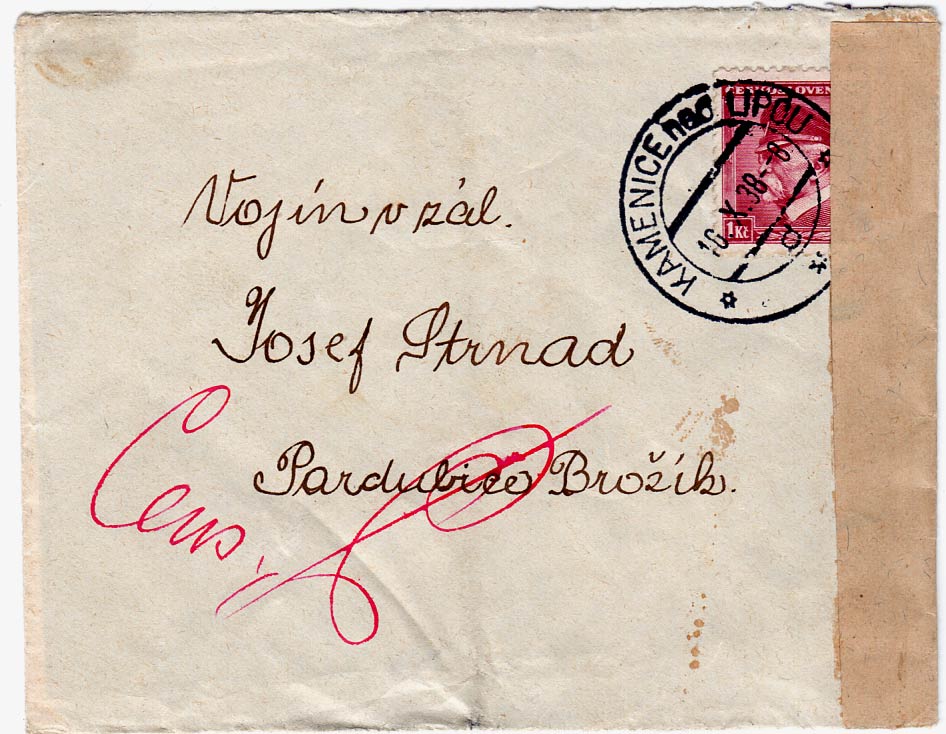 ČESKOSLOVEN
KAMENICE nad LIPOU
16. X. 38.-8
1Kč
Vojín v zál.
Josef Strnad
Pardubice Brožík.
Cens.